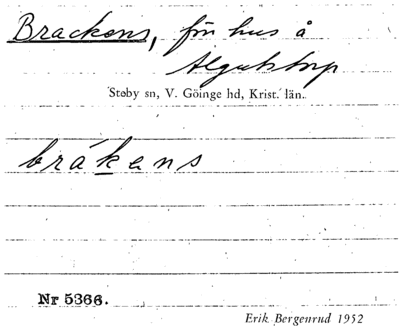 Brackens, för hus å
Algutstorp
Stoby sn, V. Göinge hd, Krist. län.
brákens
Nr 5366.
Erik Bergenrud 1952